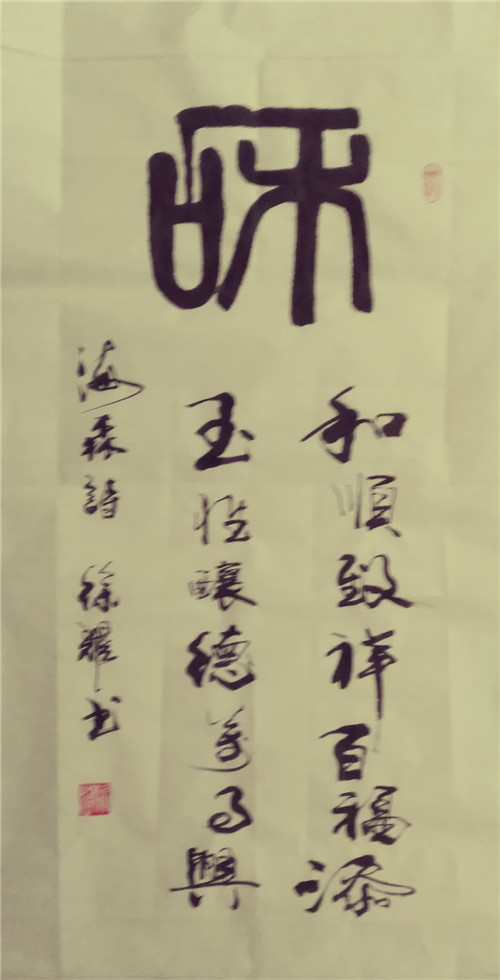 和
和順致祥百福添
玉性釀德萬事興
海森詩 徐耀書